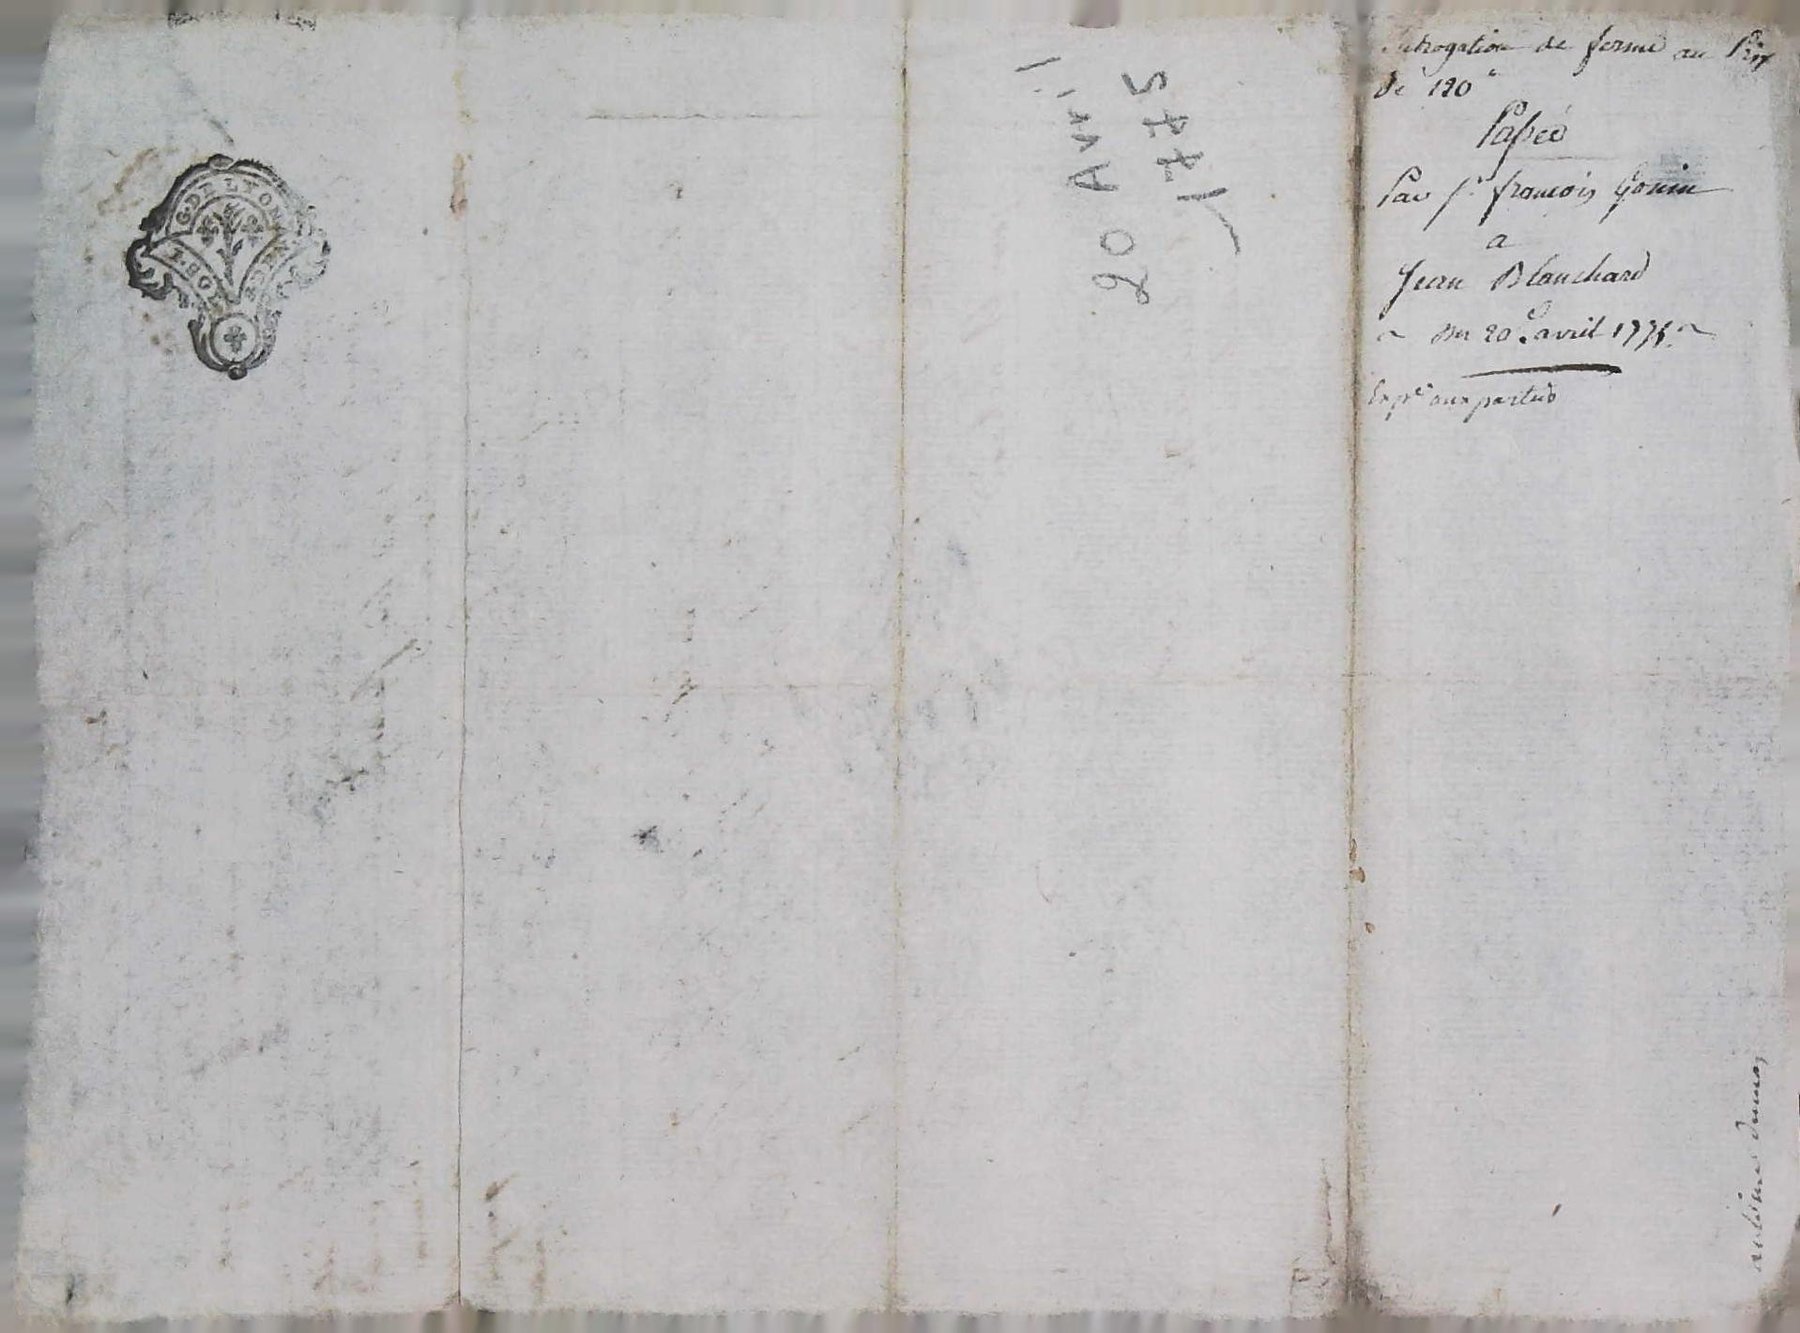 G. DE LYON
20 Avril
1775
Subrogation de ferme au Prix
de 120
Passée
Par Sr. françois Gonin
a
Jean Blanchard
Du 20e. avril 1775
Expé. aux parties